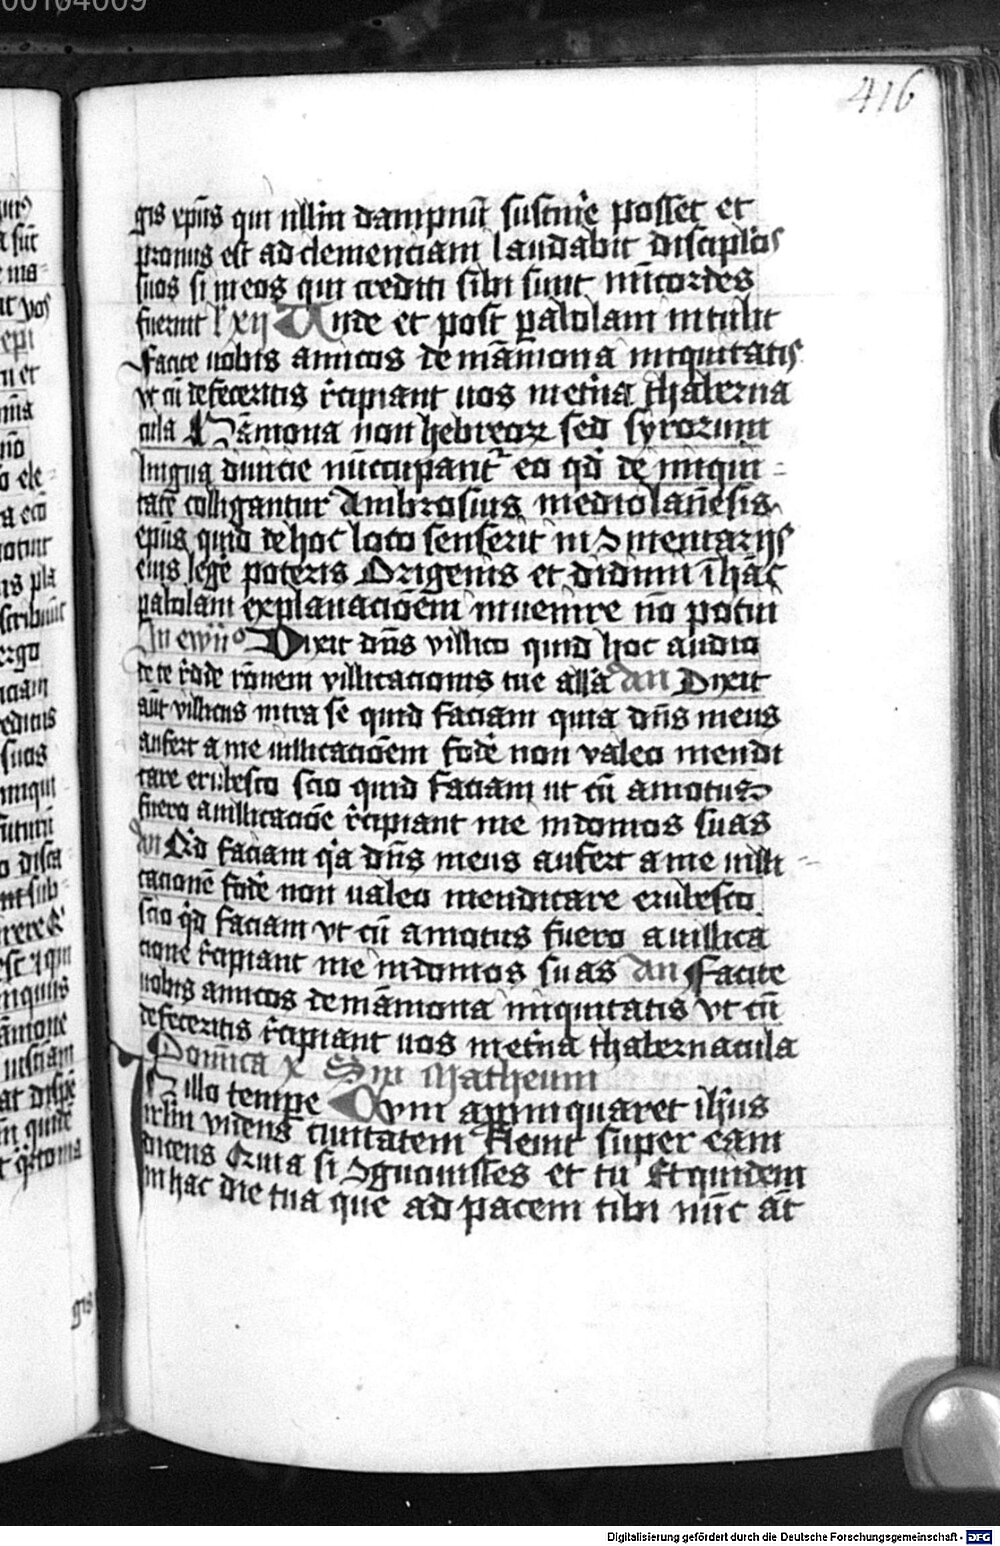 00104009
416
gis xp̄us qui nllm̄ dampnū sustin'e posset et
pronus est ad clemenciam laudabit discipl'os
suos si in eos qui crediti sibi sunt mīcordes
fuerint l' xij Unde et post p̄abolam intulit
Facite uobis amicos de māmona iniquitatis
vt cū defeceritis r̄cipiant uos in et'na thaberna
cula Māmona non hebreoꝝ sed syrorum
lingua diuicie nūccupant' eo qd' de iniqui=
tate colligantur Ambrosius mediolan̄esis
ep̄us quid de hoc loco senserit in ꝯmentarijs
eius leg'e poteris Origenis et didimi ī hāc
pabolam explanaciōem inuenire nō potui
In ew̄ijo Dixit dn̄s villico quid hoc audio
de te r̄de rōnem villicacionis tue all'a an Dixit
aūt villicus intra se quid faciam quia dn̄s meus
aufert a me uillicaciōem fod'e non valeo mendi
care erubesco scio quid faciam ut cū amotus
fuero a uillicaciōe r̄cipiant me in domos suas
an Qd' faciam q'a dn̄s meus aufert a me uilli=
cationē fod'e non ualeo mendicare erubesco
scio qd' faciam vt cū amotus fuero a uillica
cione r̄cipiant me in domos suas an Facite
uobis amicos de māmona iniquitatis vt cū
defeceritis r̄cipiant uos in et'na thabernacula
Domīca x Sm̄ Matheum
In illo tempe Cum appinquaret ih̄us
irl̄m videns ciuitatem fleuit super eam
dicens Quia si ꝯgnouisses et tu Et quidem
in hac die tua que ad pacem tibi nūc āt
gis
Digitalisierung gefördert durch die Deutsche Forschungsgemeinschaft - DFG